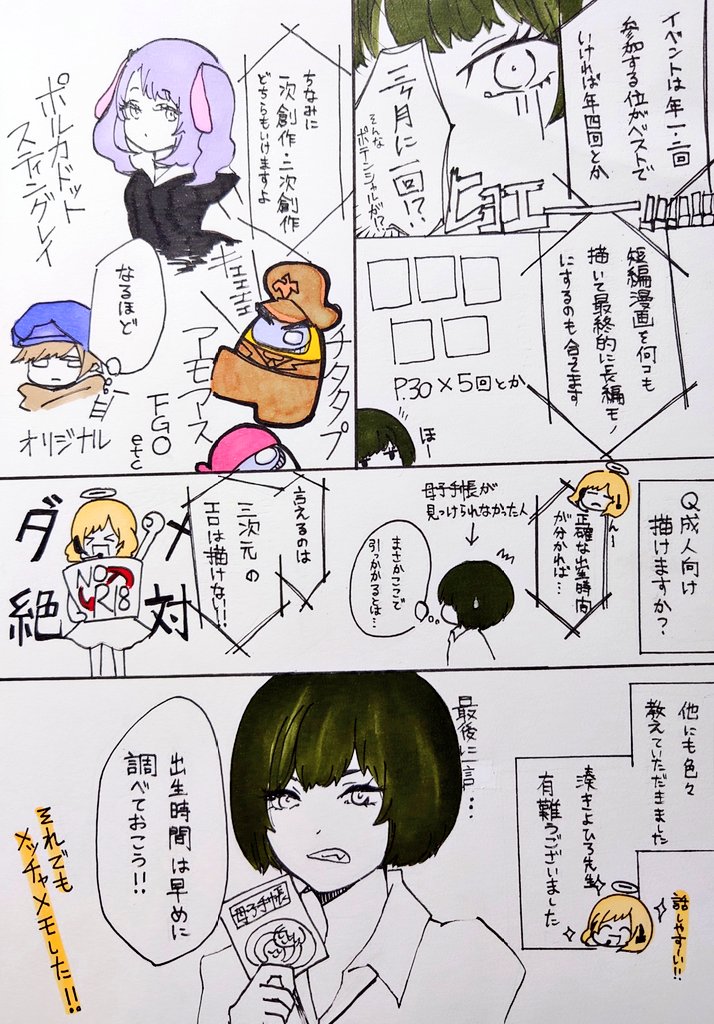 イベントは年一・二回
参加する位がベストで
いければ年四回とか
三ヶ月に一回!?
そんな
ポテンシャルが!?
ヒョエ
ちなみに
一次創作・二次創作
どちらもいけますよ
ポルカドット
スティングレイ
キェェェェ
なるほど
オリジナル
チタタプ
アモアス
FGO
etc
短編漫画を何コも
描いて最終的に長編モノ
にするのも合ってます
P.30×5回とか
ほー
Q成人向け
描けますか?
んー
正確な出生時間
が分かれば…
母子手帳が
見つけられなかった人
まさかここで
引っかかるとは…
言えるのは
三次元の
エロは描けない!!
ダメ
絶対
NO
R18
他にも色々
教えていただきました
湊きよひろ先生
有難うございました
話しやすーい!!
最後に一言…
出生時間は早めに
調べておこう!!
母子手帳
それでも
メッチャメモした!!